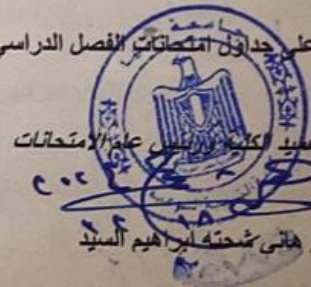 على جداول امتحانات الفصل الدراسي
جامعة
عميد الكلية ورئيس عام الامتحانات
هاني شحته ابراهيم السيد